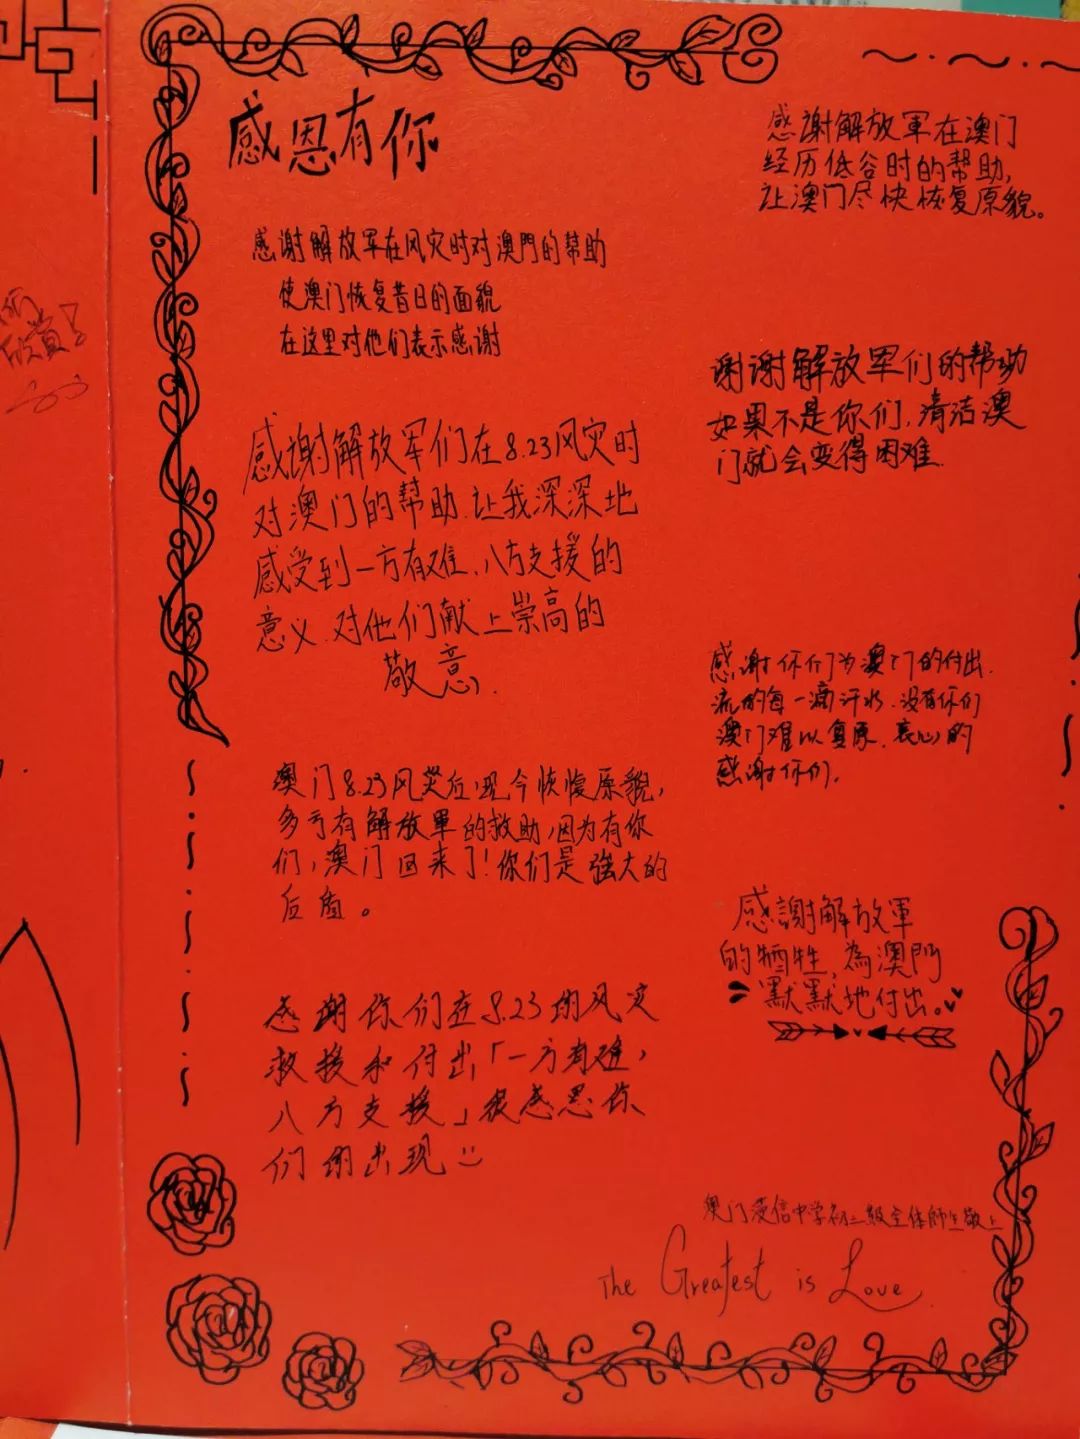 感恩有你
感谢解放军在风灾时对澳門的帮助
使澳门恢复昔日的面貌
在这里对他们表示感谢
感谢解放军们在8.23风灾时
对澳门的帮助.让我深深地
感受到一方有难、八方支援的
意义.对他们献上崇高的
敬意.
澳门8.23风災后,现今恢復原貌,
多亏有解放軍的救助,因为有你
们,澳门回来了!你们是強大的
后盾。
感谢你们在8.23的风灾
救援和付出「一方有难,
八方支援」很感恩你
们的出现
感谢解放軍在澳门
经历低谷时的帮助,
让澳门尽快恢复原貌。
谢谢解放军们的帮助
如果不是你们,清洁澳
门就会变得困难.
感谢你们为澳门的付出.
流的每一滴汗水.没有你们
澳门难以复原.衷心的
感谢你们.
感謝解放軍
的犧牲,為澳門
默默地付出。
澳门 信中学初二級全体師生敬上
The Greatest is Love
欣賞!